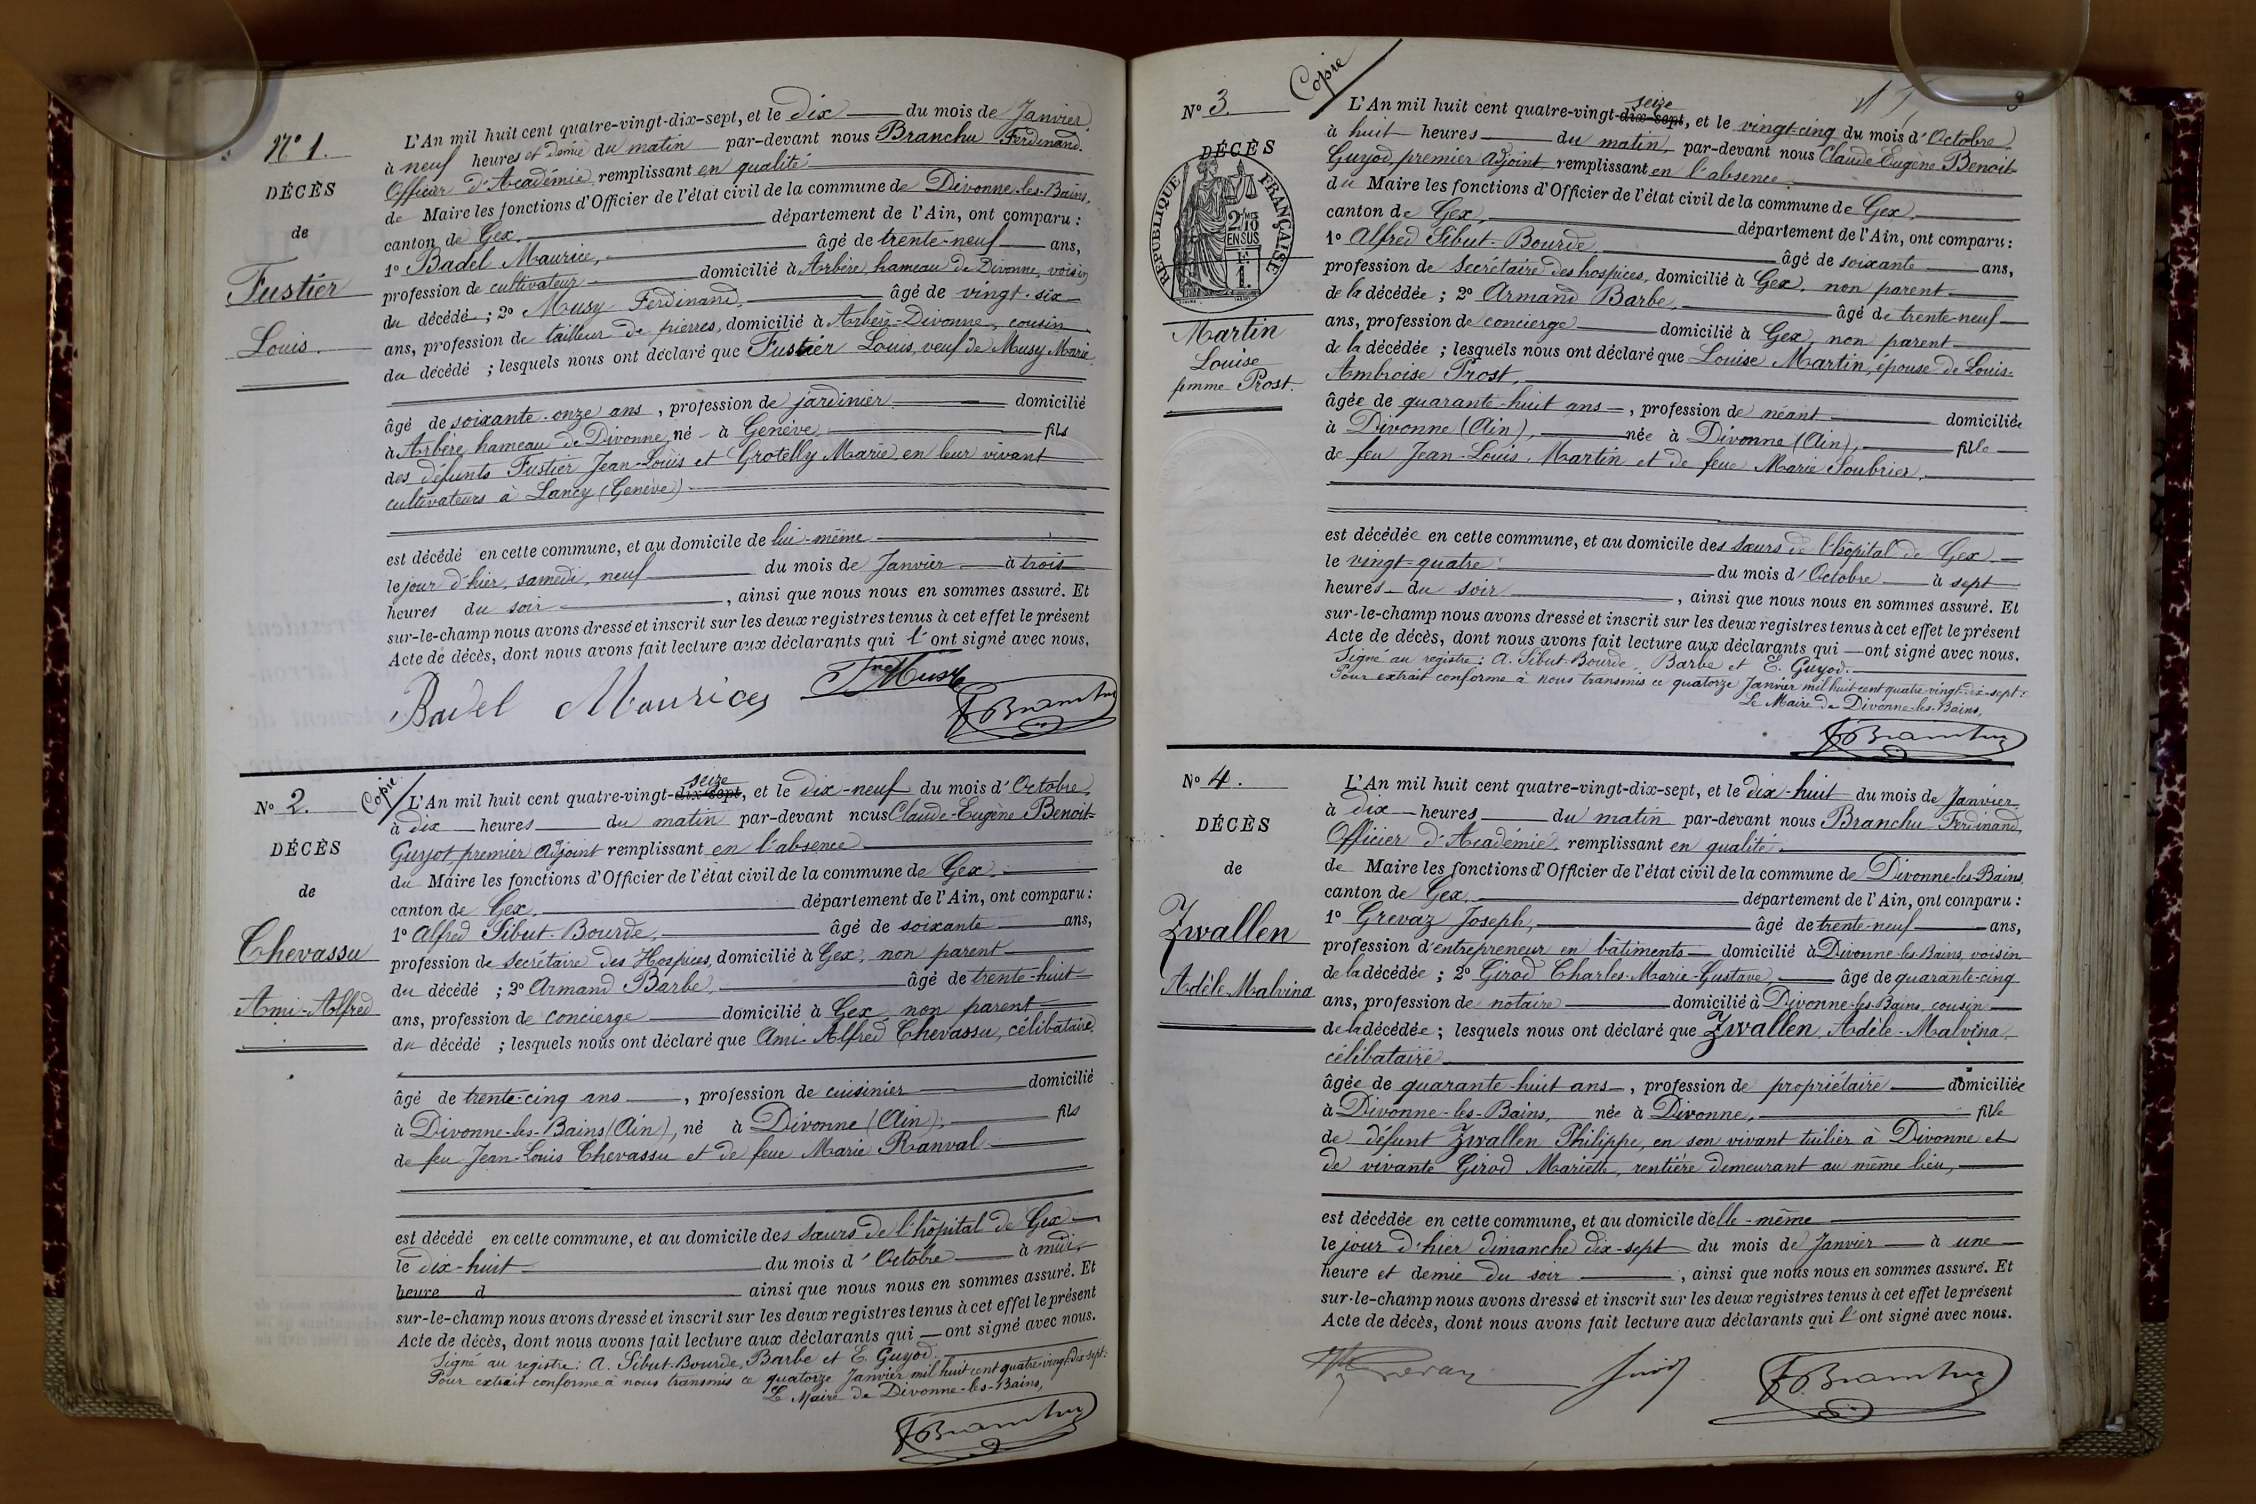 N° 1.
DÉCÈS
de
Fustier
Louis.
L'An mil huit cent quatre-vingt-dix-sept, et le dix du mois de Janvier,
à neuf heures et demie du matin par-devant nous Branchu Ferdinand,
Officier d'Académie, remplissant en qualité
de Maire les fonctions d'Officier de l'état civil de la commune de Divonne-les-Bains,
canton de Gex, département de l'Ain, ont comparu :
1° Badel Maurice, âgé de trente-neuf ans,
profession de cultivateur domicilié à Arbère, hameau de Divonne, voisin
du décédé ; 2° Musy Ferdinand, âgé de vingt-six
ans, profession de tailleur de pierres, domicilié à Arbère-Divonne, cousin
du décédé ; lesquels nous ont déclaré que Fustier Louis, veuf de Musy Marie,
âgé de soixante-onze ans, profession de jardinier domicilié
à Arbère, hameau de Divonne, né à Genève fils
des défunts Fustier Jean-Louis et Grotelly Marie, en leur vivant
cultivateurs à Lancy (Genève)
est décédé en cette commune, et au domicile de lui-même
le jour d'hier, samedi, neuf du mois de Janvier à trois
heures du soir, ainsi que nous nous en sommes assuré. Et
sur-le-champ nous avons dressé et inscrit sur les deux registres tenus à cet effet le présent
Acte de décès, dont nous avons fait lecture aux déclarants qui l'ont signé avec nous.
Badel Maurice Musy F Branchu
N° 2.
Copie
DÉCÈS
de
Chevassu
Ami-Alfred
seize
L'An mil huit cent quatre-vingt-dix-sept, et le dix-neuf du mois d'Octobre,
à dix heures du matin par-devant nous Claude-Eugène Benoit-
Guyot, premier adjoint remplissant en l'absence
du Maire les fonctions d'Officier de l'état civil de la commune de Gex,
canton de Gex, département de l'Ain, ont comparu :
1° Alfred Sibut-Bourde, âgé de soixante ans,
profession de secrétaire des Hospices, domicilié à Gex, non parent
du décédé ; 2° Armand Barbe, âgé de trente-huit
ans, profession de concierge domicilié à Gex, non parent
du décédé ; lesquels nous ont déclaré que Ami-Alfred Chevassu, célibataire,
âgé de trente-cinq ans, profession de cuisinier domicilié
à Divonne-les-Bains (Ain), né à Divonne (Ain), fils
de feu Jean-Louis Chevassu et de feue Marie Ranval
est décédé en cette commune, et au domicile des sœurs de l'hôpital de Gex
le dix-huit du mois d'Octobre à midi,
heure d ainsi que nous nous en sommes assuré. Et
sur-le-champ nous avons dressé et inscrit sur les deux registres tenus à cet effet le présent
Acte de décès, dont nous avons fait lecture aux déclarants qui ont signé avec nous.
Signé au registre : A. Sibut-Bourde, Barbe et E. Guyod.
Pour extrait conforme à nous transmis ce quatorze Janvier mil huit cent quatre-vingt-dix-sept :
Le Maire de Divonne-les-Bains,
F Branchu
N° 3.
Copie
3
DÉCÈS
RÉPUBLIQUE FRANÇAISE
2/10
EN SUS
Martin
Louise
femme Prost.
seize
L'An mil huit cent quatre-vingt-dix-sept, et le vingt-cinq du mois d'Octobre
à huit heures du matin, par-devant nous Claude-Eugène Benoit-
Guyod, premier adjoint, remplissant en l'absence
du Maire les fonctions d'Officier de l'état civil de la commune de Gex,
canton de Gex, département de l'Ain, ont comparu :
1° Alfred Sibut-Bourde, âgé de soixante ans,
profession de secrétaire des hospices, domicilié à Gex, non parent
de la décédée ; 2° Armand Barbe, âgé de trente-neuf
ans, profession de concierge domicilié à Gex, non parent
de la décédée ; lesquels nous ont déclaré que Louise Martin, épouse de Louis-
Ambroise Prost,
âgée de quarante-huit ans, profession de néant domiciliée
à Divonne (Ain), née à Divonne (Ain), fille
de feu Jean-Louis Martin et de feue Marie Soubrier,
est décédée en cette commune, et au domicile des sœurs de l'hôpital de Gex
le vingt-quatre du mois d'Octobre à sept
heures du soir, ainsi que nous nous en sommes assuré. Et
sur-le-champ nous avons dressé et inscrit sur les deux registres tenus à cet effet le présent
Acte de décès, dont nous avons fait lecture aux déclarants qui ont signé avec nous.
Signé au registre : A. Sibut-Bourde, Barbe et E. Guyod.
Pour extrait conforme à nous transmis ce quatorze Janvier mil huit cent quatre-vingt-dix-sept :
Le Maire de Divonne-les-Bains,
F Branchu
N° 4.
DÉCÈS
de
Zwallen
Adèle-Malvina
L'An mil huit cent quatre-vingt-dix-sept, et le dix-huit du mois de Janvier
à dix heures du matin par-devant nous Branchu Ferdinand,
Officier d'Académie, remplissant en qualité
de Maire les fonctions d'Officier de l'état civil de la commune de Divonne-les-Bains,
canton de Gex, département de l'Ain, ont comparu :
1° Grevaz Joseph, âgé de trente-neuf ans,
profession d'entrepreneur en bâtiments domicilié à Divonne-les-Bains, voisin
de la décédée ; 2° Girod Charles-Marie-Gustave âgé de quarante-cinq
ans, profession de notaire domicilié à Divonne-les-Bains, cousin
de la décédée ; lesquels nous ont déclaré que Zwallen, Adèle-Malvina,
célibataire
âgée de quarante-huit ans, profession de propriétaire domiciliée
à Divonne-les-Bains, née à Divonne, fille
de défunt Zwallen Philippe, en son vivant tuilier à Divonne et
de vivante Girod Mariette, rentière demeurant au même lieu,
est décédée en cette commune, et au domicile d'elle-même
le jour d'hier dimanche dix-sept du mois de Janvier à une
heure et demie du soir, ainsi que nous nous en sommes assuré. Et
sur-le-champ nous avons dressé et inscrit sur les deux registres tenus à cet effet le présent
Acte de décès, dont nous avons fait lecture aux déclarants qui l'ont signé avec nous.
Girod F Branchu